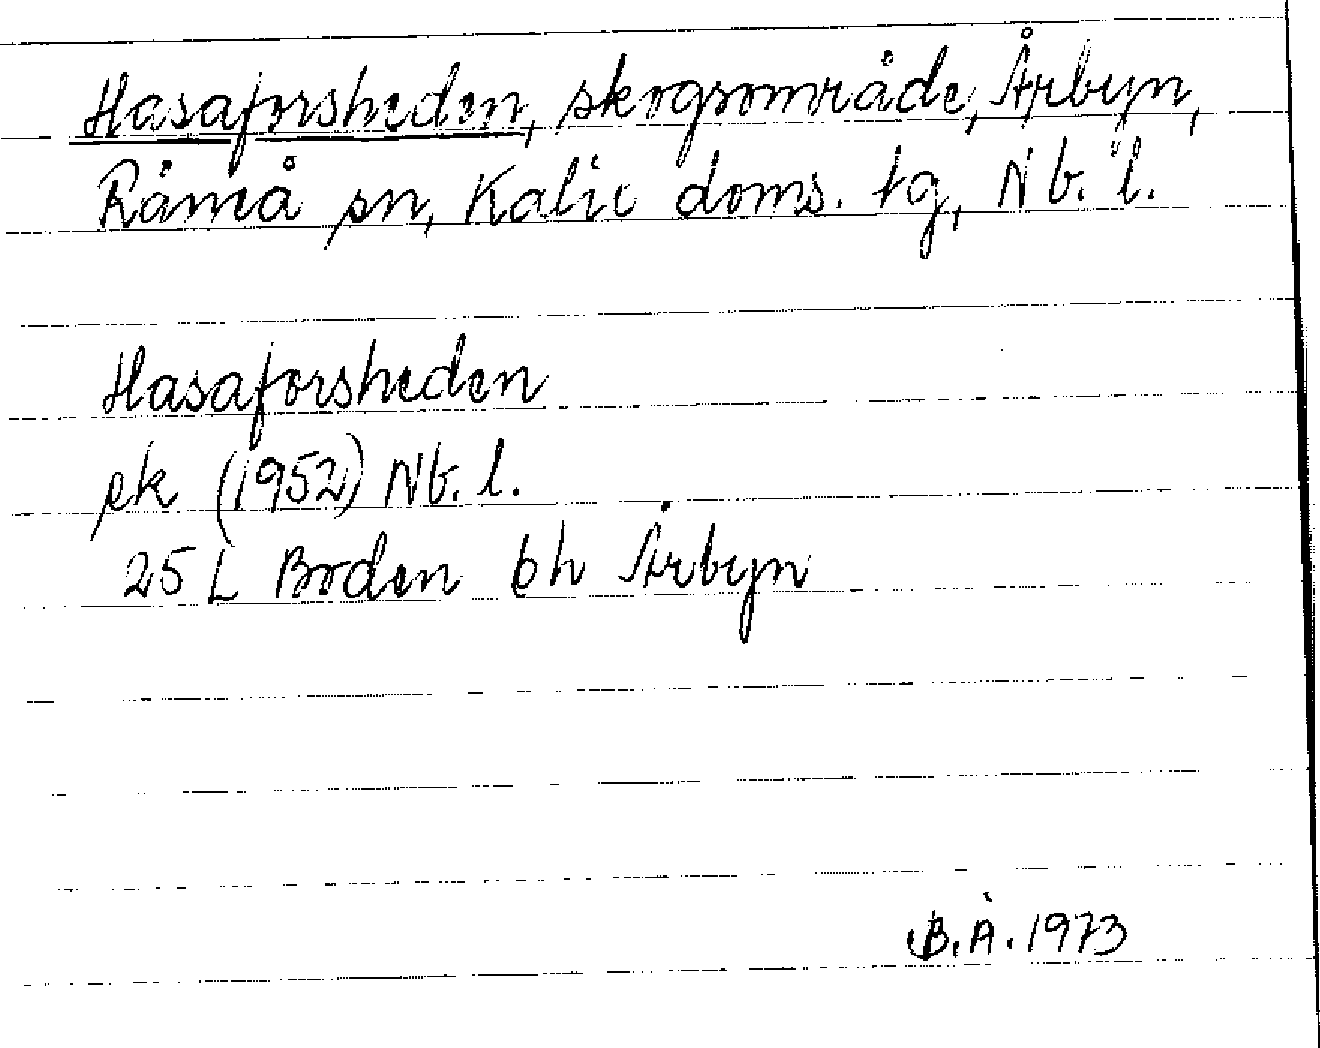 Hasaforsheden, skogsområde, Årbyn,
Råneå sn, Kalix doms. tg, Nb. l.
Hasaforsheden
ek (1952) Nb. l.
25 L Boden bh Årbyn
B.Å. 1973